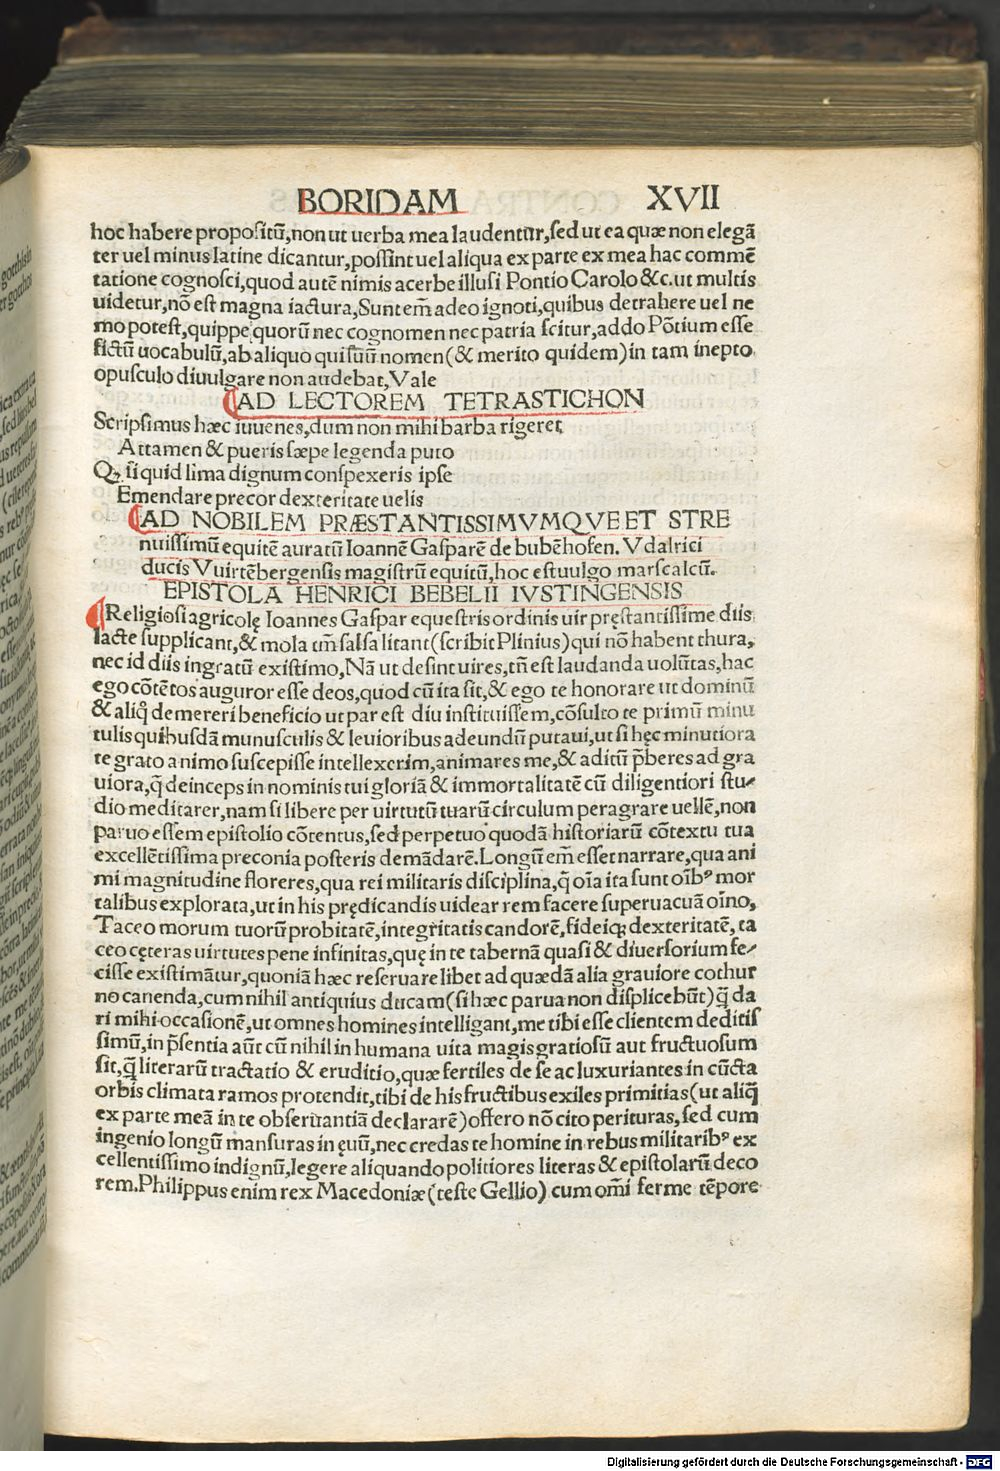 BORIDAM XVII
hoc habere propositū,non ut uerba mea laudentur,sed ut ea quæ non elegā
ter uel minus latine dicantur,possint uel aliqua ex parte ex mea hac commē
tatione cognosci,quod autē nimis acerbe illusi Pontio Carolo &c.ut multis
uidetur,nō est magna iactura,Sunt em̄ adeo ignoti,quibus detrahere uel ne
mo potest,quippe quorū nec cognomen nec patria scitur,addo Pōtium esse
fictū uocabulū,ab aliquo qui suū nomen(& merito quidem)in tam inepto
opusculo diuulgare non audebat,Vale
AD LECTOREM TETRASTICHON
Scripsimus hæc iuuenes,dum non mihi barba rigeret
Attamen & pueris sæpe legenda puto
Qꝫ si quid lima dignum conspexeris ipse
Emendare precor dexteritate uelis
AD NOBILEM PRÆSTANTISSIMVMQVE ET STRE
nuissimū equitē auratū Ioannē Gasparē de bubēhofen. Vdalrici
ducis Vuirtēbergensis magistrū equitū,hoc est uulgo marscalcū.
EPISTOLA HENRICI BEBELII IVSTINGENSIS
Religiosi agricolę Ioannes Gaspar equestris ordinis uir pręstantissime diis
lacte supplicant,& mola tm̄ salsa litant(scribit Plinius)qui nō habent thura,
nec id diis ingratū existimo,Nā ut desint uires,tn̄ est laudanda uolūtas,hac
ego cōtētos auguror esse deos,quod cū ita sit,& ego te honorare ut dominū
& aliq̄ demereri beneficio ut par est diu instituissem,cōsulto te primū minu
tulis quibusdā munusculis & leuioribus adeundū putaui,ut si hęc minutiora
te grato animo suscepisse intellexerim,animares me,& aditū p̄beres ad gra
uiora,q̄ deinceps in nominis tui gloriā & immortalitatē cū diligentiori stu⸗
dio meditarer,nam si libere per uirtutū tuarū circulum peragrare uellē,non
paruo essem epistolio cōtentus,sed perpetuo quodā historiarū cōtextu tua
excellētissima preconia posteris demādarē.Longū em̄ esset narrare,qua ani
mi magnitudine floreres,qua rei militaris disciplina,q̄ oīa ita sunt oīb⁹ mor
talibus explorata,ut in his prędicandis uidear rem facere superuacuā oīno,
Taceo morum tuorū probitatē,integritatis candorē,fideiqꝫ dexteritatē,ta
ceo cęteras uirtutes pene infinitas,quę in te tabernā quasi & diuersorium fe⸗
cisse existimātur,quoniā hæc reseruare libet ad quædā alia grauiore cothur
no canenda,cum nihil antiquius ducam(si hæc parua non displicebūt)q̄ da
ri mihi occasionē,ut omnes homines intelligant,me tibi esse clientem deditis
simū,in p̄sentia aūt cū nihil in humana uita magis gratiosū aut fructuosum
sit,q̄ literarū tractatio & eruditio,quæ fertiles de se ac luxuriantes in cūcta
orbis climata ramos protendit,tibi de his fructibus exiles primitias(ut aliq̄
ex parte meā in te obseruantiā declararē)offero nō cito perituras,sed cum
ingenio longū mansuras in ęuū,nec credas te homine in rebus militarib⁹ ex
cellentissimo indignū,legere aliquando politiores literas & epistolarū deco
rem.Philippus enim rex Macedoniæ(teste Gellio)cum om̄i ferme tēpore
Digitalisierung gefördert durch die Deutsche Forschungsgemeinschaft - DFG